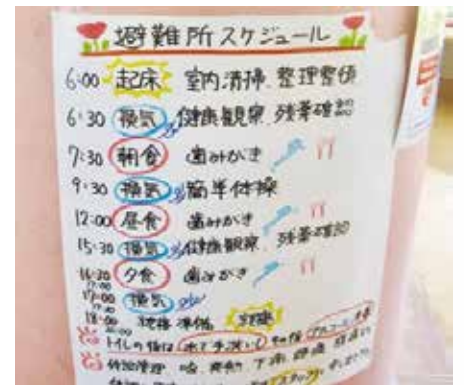 避難所スケジュール
6:00 起床 室内清掃、整理整頓
6:30 換気 健康観察、残薬確認
7:30 朝食 歯みがき
9:30 換気 簡単体操
12:00 昼食 歯みがき
15:30 換気 健康観察、残薬確認
16:30 夕食 歯みがき
17:00 換気
18:00 就寝準備
トイレの後は 水で手洗い その後 アルコール
体調管理 咳、発熱、下痢、